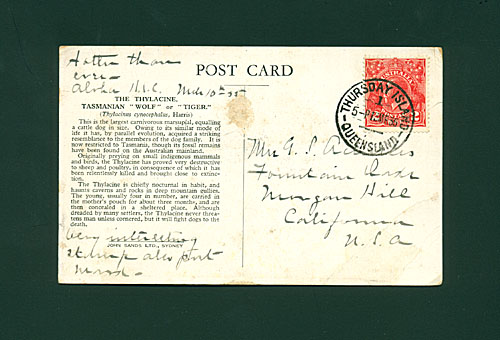 Hotter than
ever
Aloha H.V.C. Mch 10th 35
POST CARD
THE THYLACINE,
TASMANIAN "WOLF" or "TIGER."
(Thylacinus cynocephalus, Harris)
This is the largest carnivorous marsupial, equalling
a cattle dog in size. Owing to its similar mode of
life it has, by parallel evolution, acquired a striking
resemblance to the members of the dog family. It is
now restricted to Tasmania, though its fossil remains
have been found on the Australian mainland.
Originally preying on small indigenous mammals
and birds, the Thylacine has proved very destructive
to sheep and poultry, in consequence of which it has
been relentlessly hunted and brought close to extinc-
tion.
The Thylacine is chiefly nocturnal in habit, and
haunts caverns and rocks in deep mountain gullies.
The young, usually four in number, are carried in
the mother's pouch for about three months, and are
then concealed in a sheltered place. Although
dreaded by many settlers, the Thylacine never threa-
tens man unless cornered, but it will fight dogs to the
death.
very interesting
JOHN SANDS LTD., SYDNEY
stamp also post
mark
AUSTRALIA
THURSDAY ISLAND
QUEENSLAND
Mrs G. S. A
Fountain Oaks
Morgan Hill
California
U.S.A